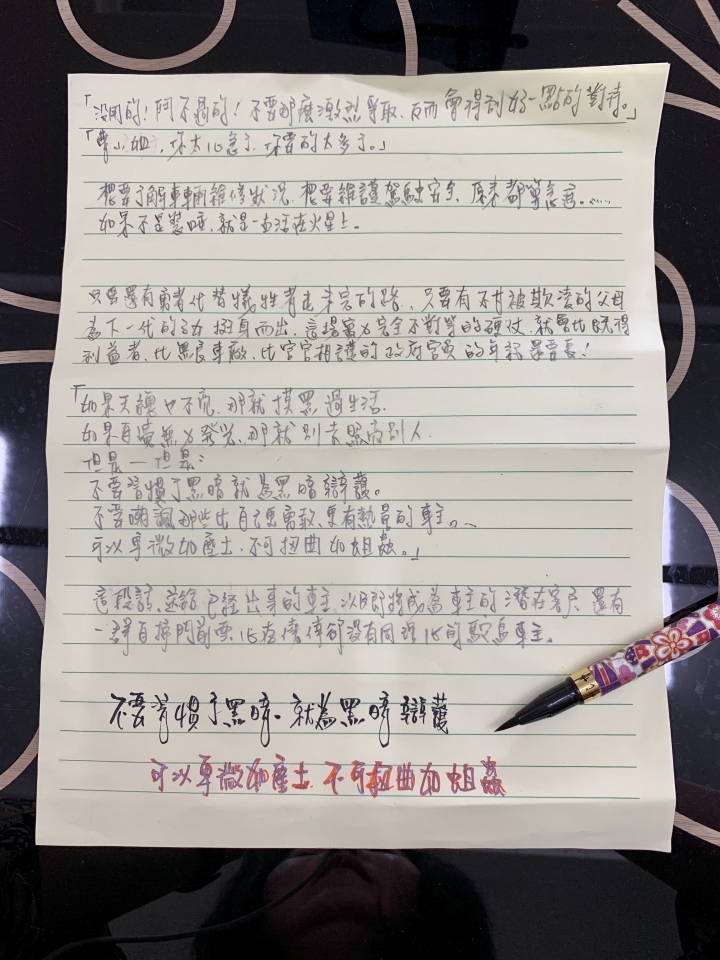 「沒用的!鬥不過的!不要那麼激烈爭取、反而會得到好一點的對待。」
「曹小姐,你太心急了、你要的太多了。」
想要了解車輛維修狀況、想要維護駕駛安全、原來都算急害。……
如果不是裝睡、就是一直活在火星上。
只要還有勇者代替犧牲者走未完的路、只要有不甘被欺凌的父母
為下一代的子女挺身而出、這場實力完全不對等的硬仗、就會比既得
利益者、比黑良車廠、比官官相護的政府官員的年紀還要長!
「如果天總也不亮、那就摸黑過生活、
如果自覺無力發光、那就別去照亮別人、
但是—但是:
不要習慣了黑暗就為黑暗辯護。
不要嘲諷那些比自己更勇敢、更有熱量的車主。
可以卑微如塵土、不可扭曲如蛆蟲。」
這段話、送給已經出事的車主、以及即將成為車主的潛在客戶、還有
一群自掃門前雪、心存僥倖卻沒有同理心的鴕鳥車主。
不要習慣了黑暗、就為黑暗辯護
可以卑微如塵土、不可扭曲如蛆蟲